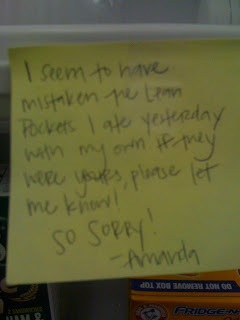 I seem to have
mistaken the Lean
Pockets I ate yesterday
with my own if they
were yours, please let
me know!
SO SORRY!
-Amanda
DO NOT REMOVE
BOX TOP
FRIDGE-N